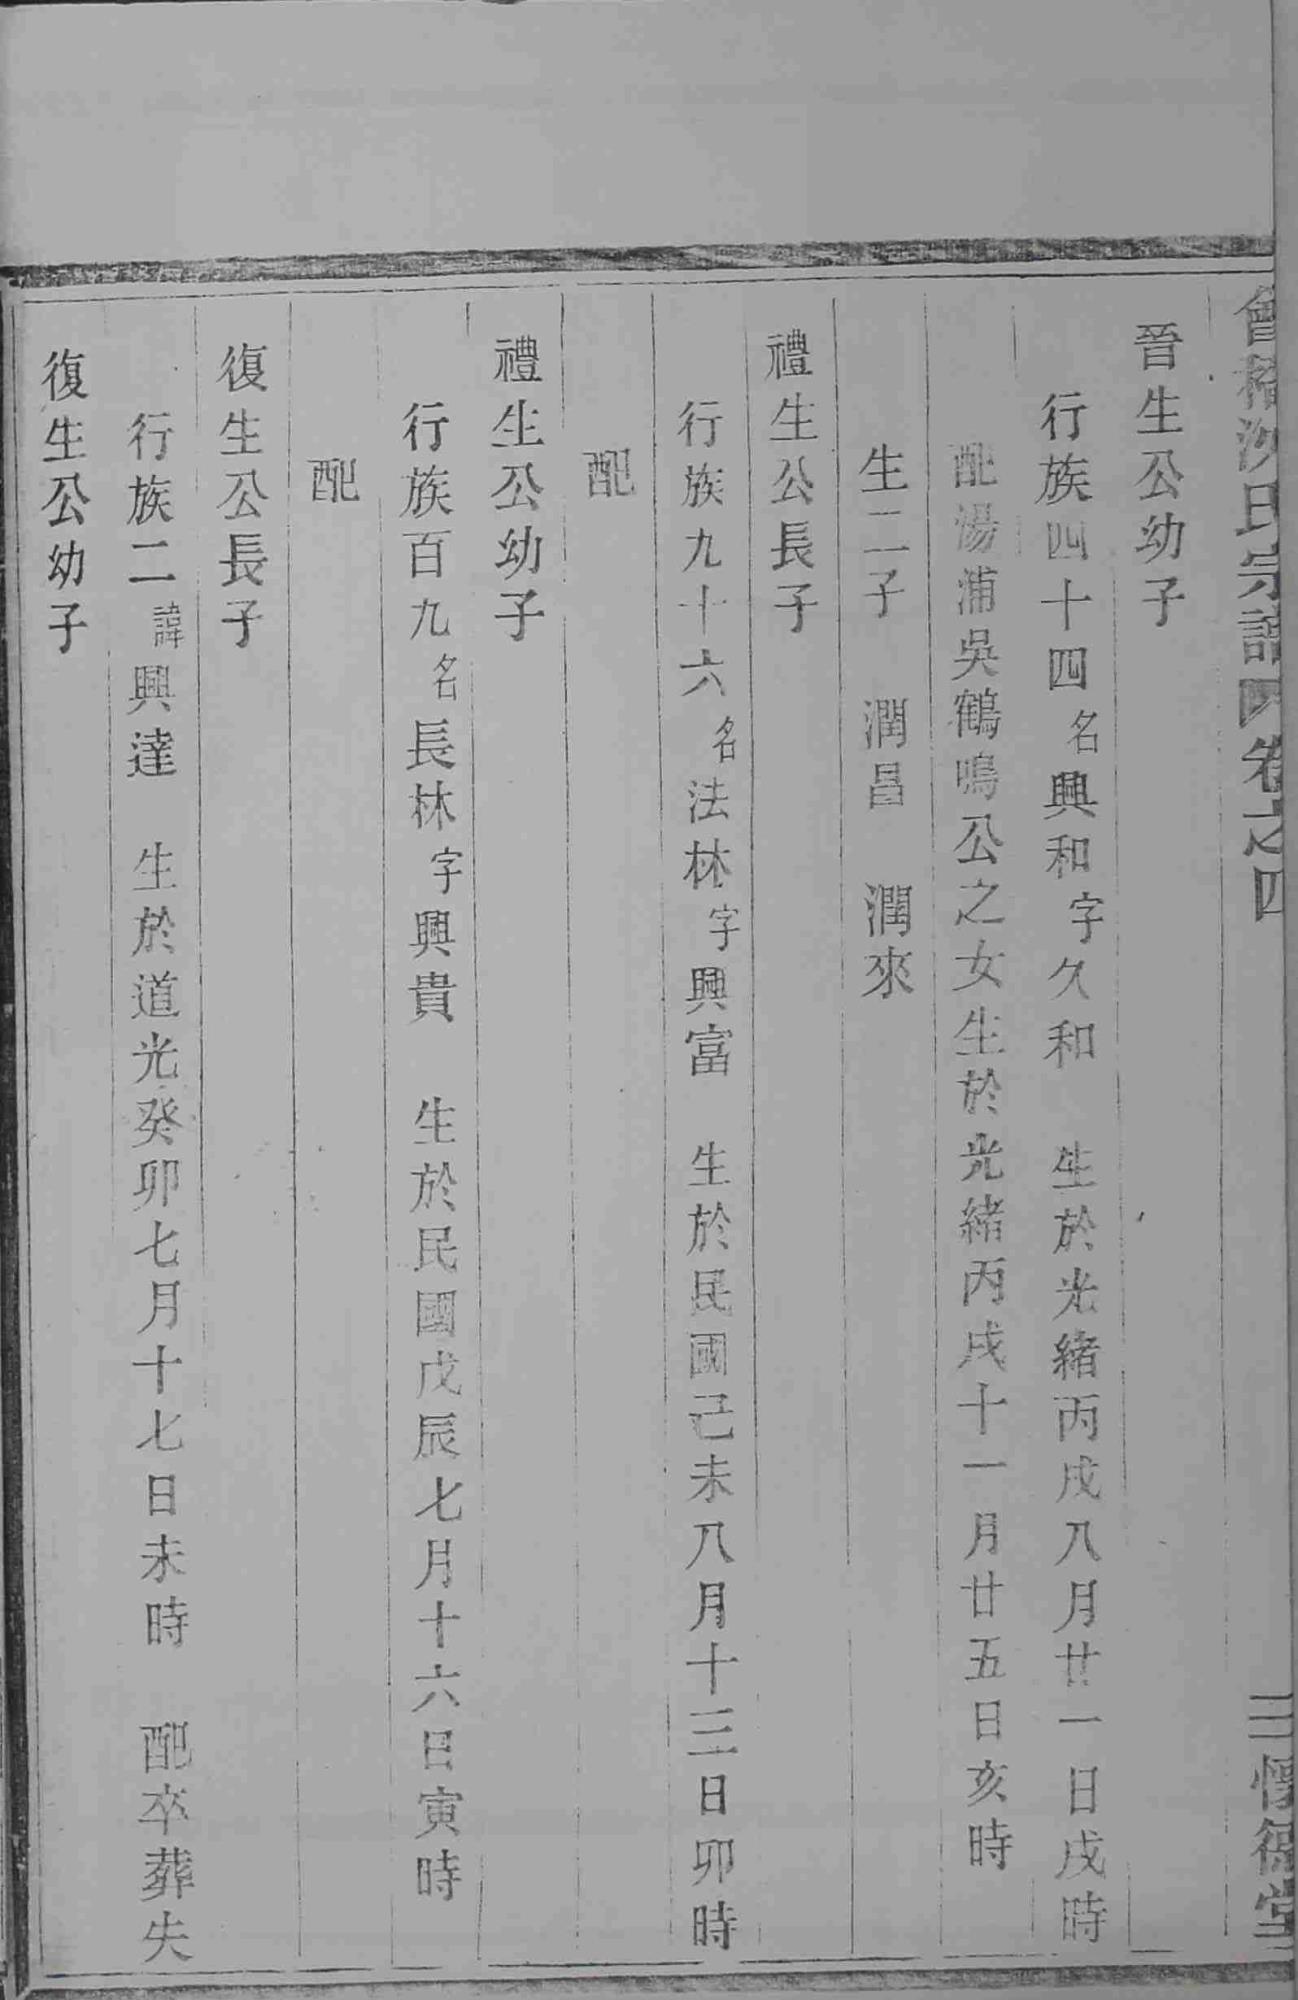 會稽沈氏宗譜 卷之四 三 懷德堂
晉生公幼子
行族四十四名興和字久和 生於光緒丙戌八月廿一日戌時
配湯浦吳鶴鳴公之女生於光緒丙戌十一月廿五日亥時
生二子 潤昌 潤來
禮生公長子
行族九十六名法林字興富 生於民國己未八月十三日卯時
配
禮生公幼子
行族百九名長林字興貴 生於民國戊辰七月十六日寅時
配
復生公長子
行族二諱興達 生於道光癸卯七月十七日未時 配卒葬失
復生公幼子